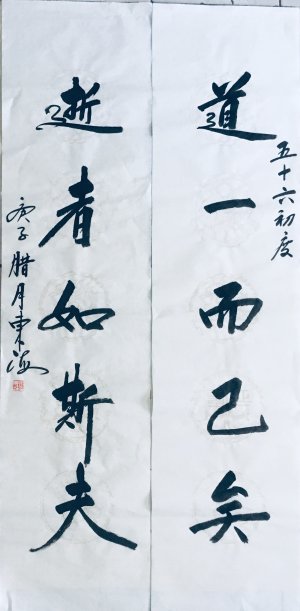 五十六初度
道一而已矣
逝者如斯夫
庚子腊月東海